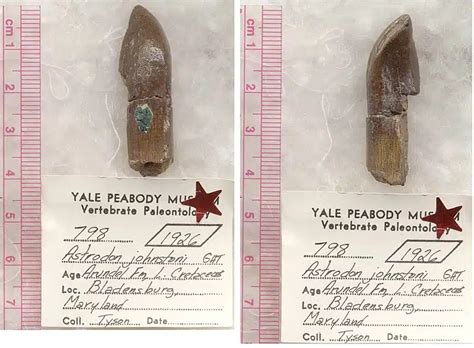 cm 1 2 3 4 5 6 7
YALE PEABODY MUSEUM
Vertebrate Paleontology
798 1926
Astrodon johnstoni
Age Arundel Fm L. Cretaceous
Loc. Bladensburg,
Maryland
Coll. Tyson Date
cm 1 2 3 4 5 6 7
YALE PEABODY MU
Vertebrate Paleontolo
798 1926
Astrodon johnstoni
Age Arundel Fm L. Cretaceous
Loc. Bladensburg,
Maryland
Coll. Tyson Date